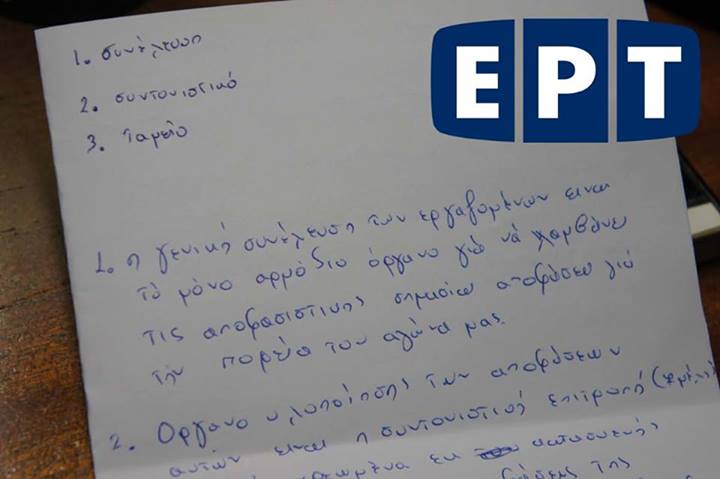 ΕΡΤ
1. συνέλευση
2. συντονιστικό
3. Ταμείο
1. η γενική συνέλευση των εργαζομένων ειναι
το μόνο αρμόδιο όργανο γιά νά λαμβάνει
τις αποφασιστικης σημασίας αποφάσεις γιά
την πορεία του αγώνα μας.
2. Οργανο υλοποίησης των αποφάσεων
αυτών ειναι η συντονιστικη επιτροπή
εκ κατασκευής
της